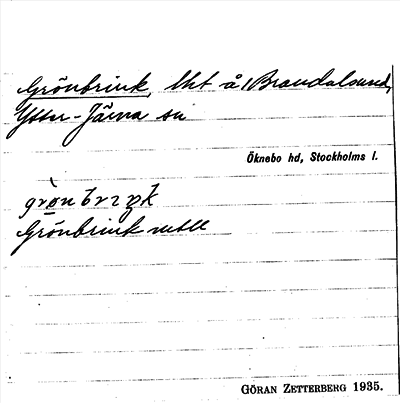 Grönbrink, lht å Brandalsund,
Ytter-Järna sn
Öknebo hd, Stockholms l.
Grönbrink
GÖRAN ZETTERBERG 1935.